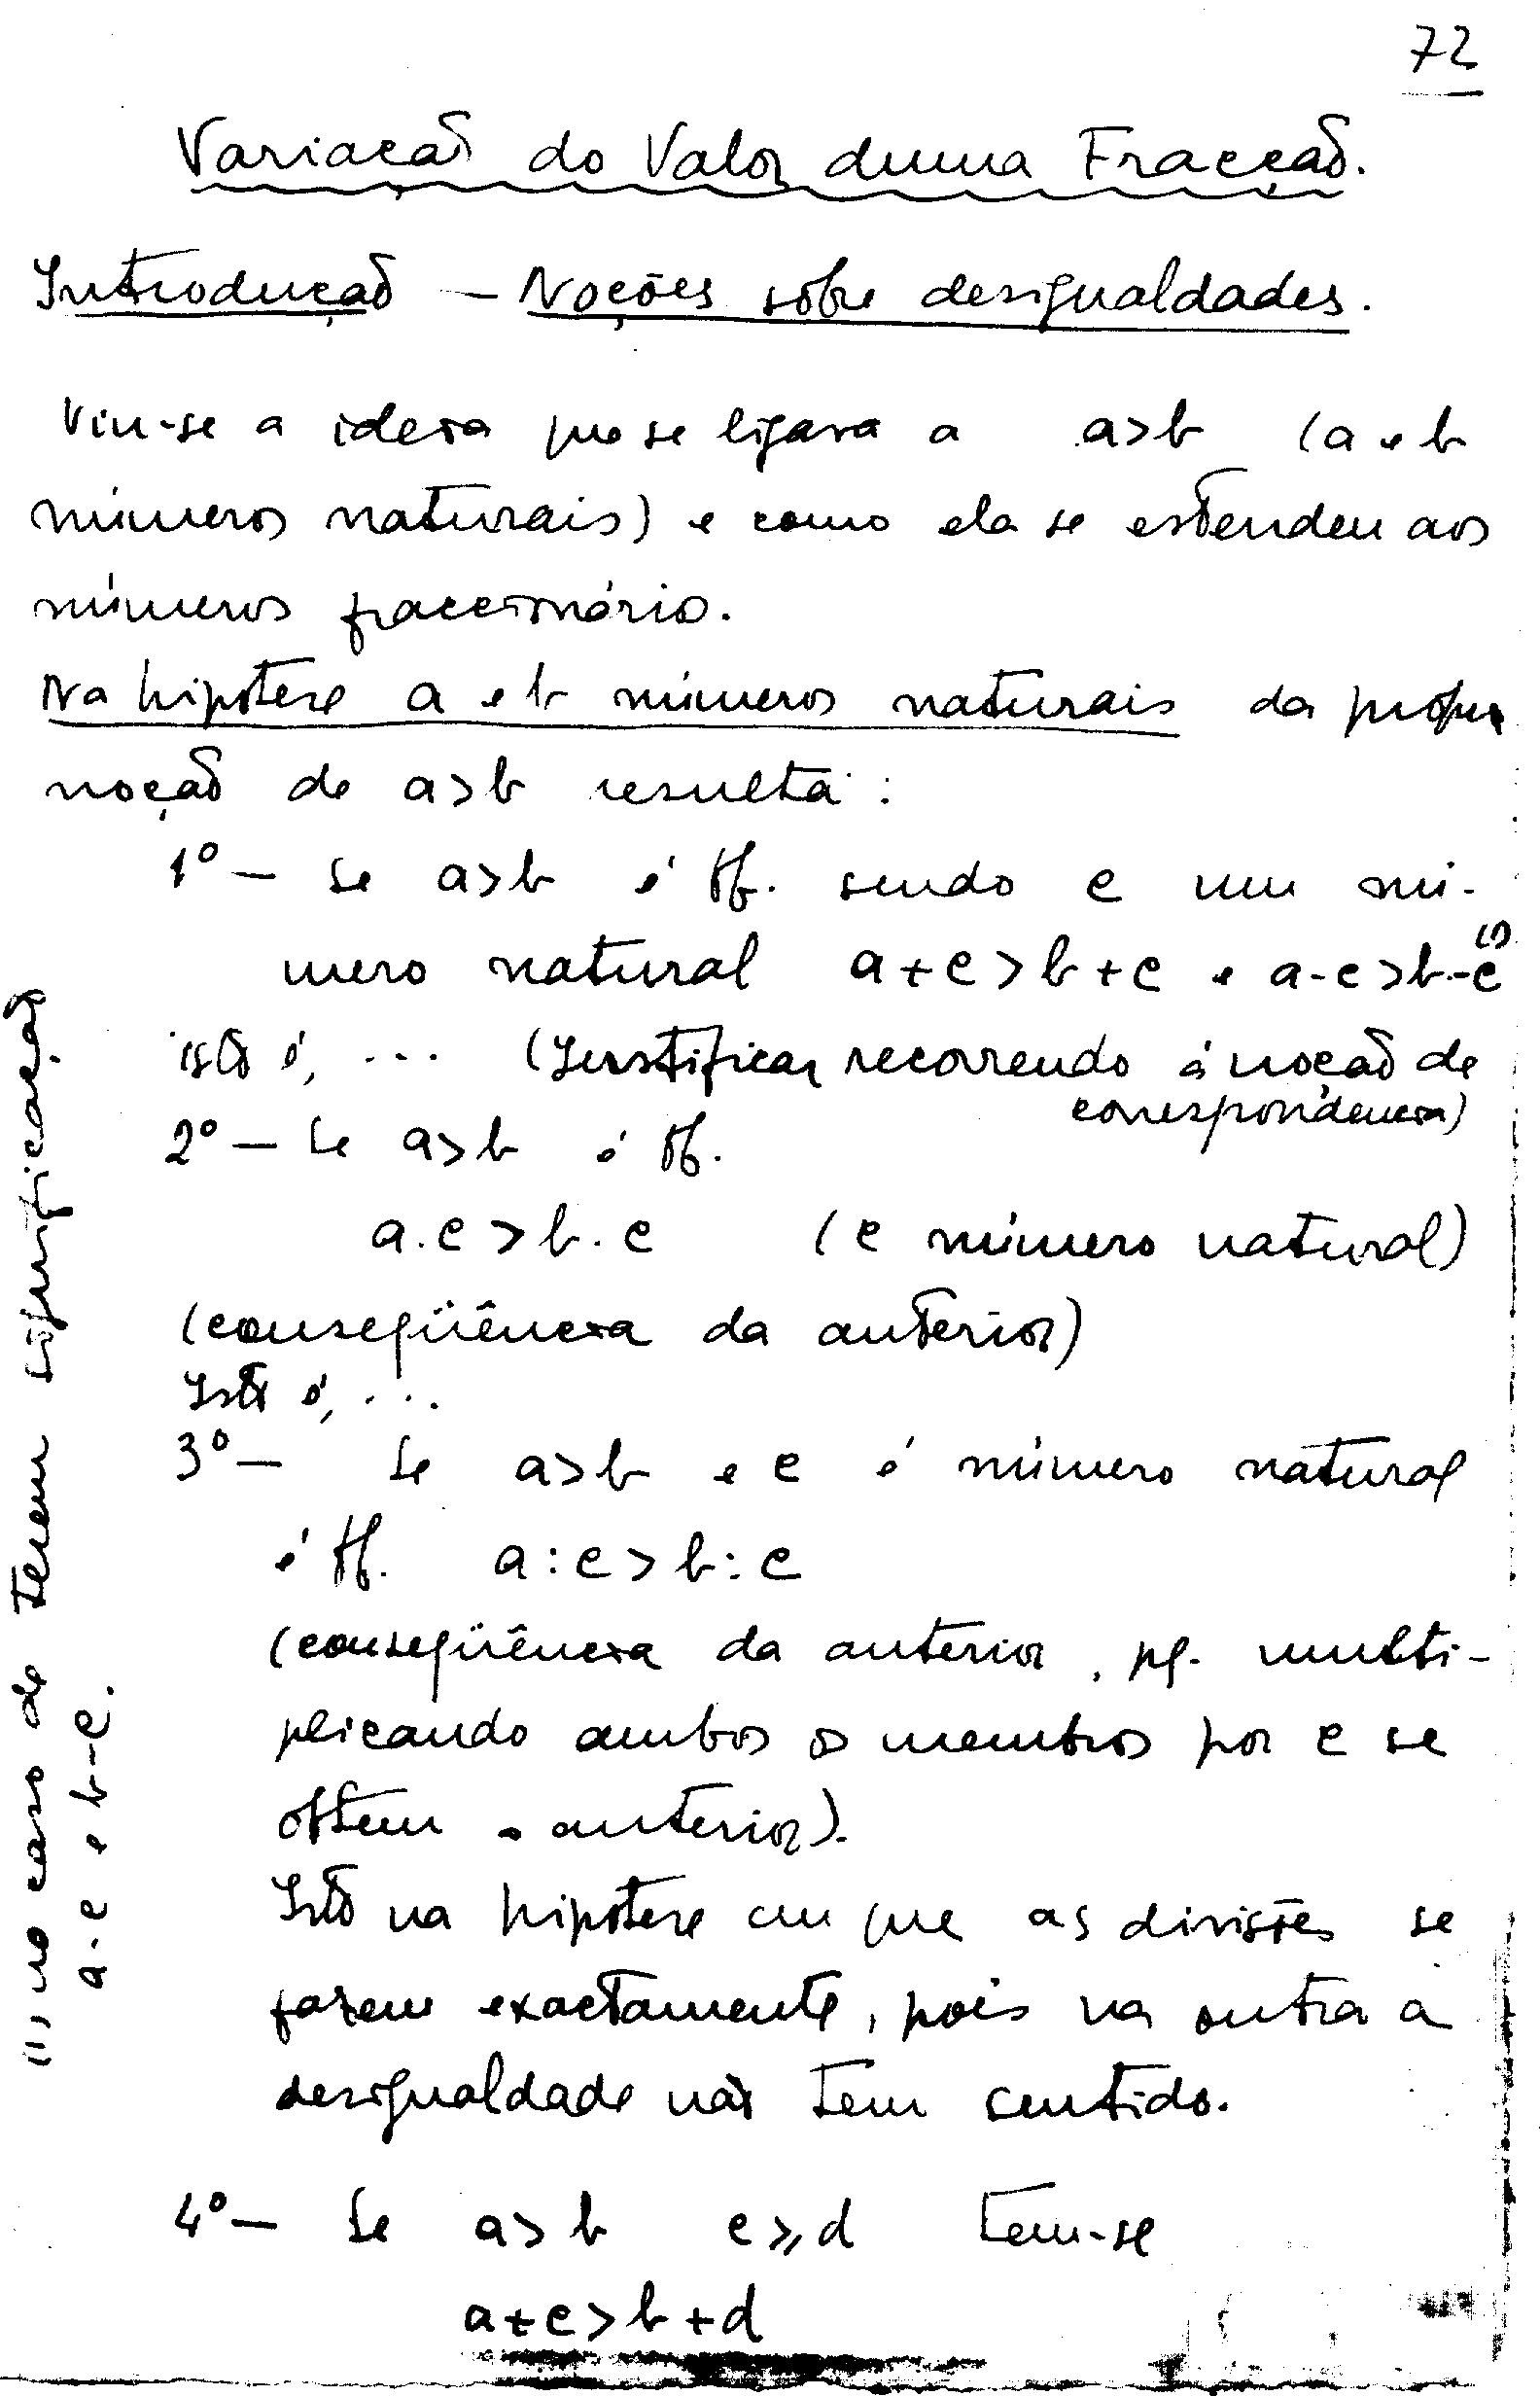 72
Variação do Valor duma Fracção.
Introdução — Noções sôbre desigualdades.
Viu-se a ideia que se ligava a a>b (a e b
números naturais) e como ela se estendeu aos
números fraccionário.
Na hipótese a e b números naturais da própria
noção de a>b resulta:
1º — Se a>b é tb. sendo c um nú-
mero natural a+c>b+c e a-c>b-c (1)
isto é, ... (Justificar recorrendo á noção de
correspondência)
2º — Se a>b é tb.
a.c>b.c (c número natural)
(conseqüência da anterior)
Isto é, ...
3º — Se a>b e c é número natural
é tb. a:c>b:c
(conseqüência da anterior, pq. multi-
plicando ambos os membros por c se
obtem a anterior).
Isto na hipótese em que as divisões se
fazem exactamente, pois na outra a
desigualdade não tem sentido.
4º — Se a>b c⩾d tem-se
a+c>b+d
(1) no caso de terem significação
a-c e b-c.